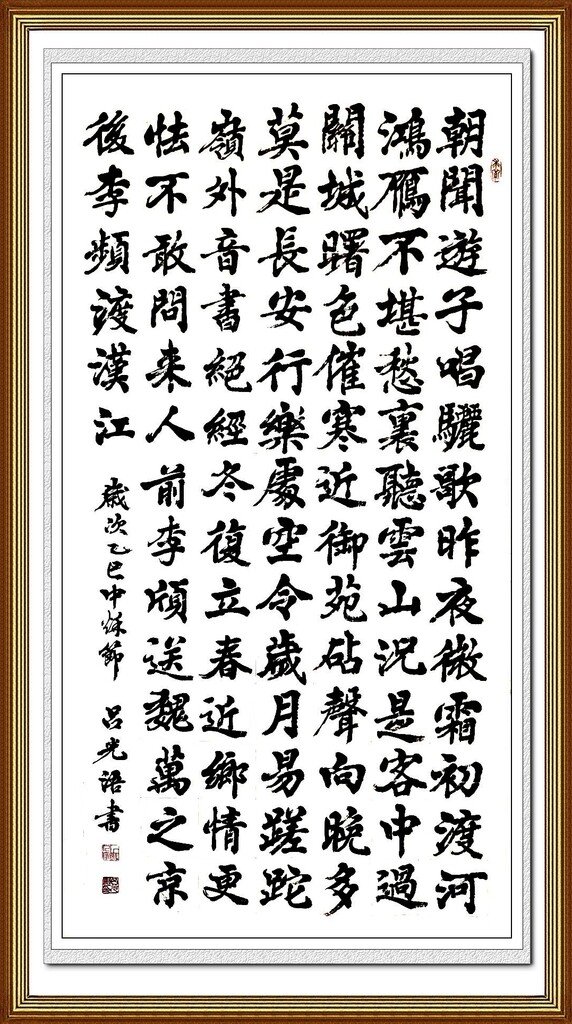 朝聞遊子唱驪歌昨夜微霜初渡河
鴻鴈不堪愁裏聽雲山況是客中過
關城曙色催寒近御苑砧聲向晚多
莫是長安行樂處空令歲月易蹉跎
嶺外音書絕經冬復立春近鄉情更
怯不敢問来人前李頎送魏萬之京
後李頻渡漢江
歲次乙巳中秌節 吕光语書